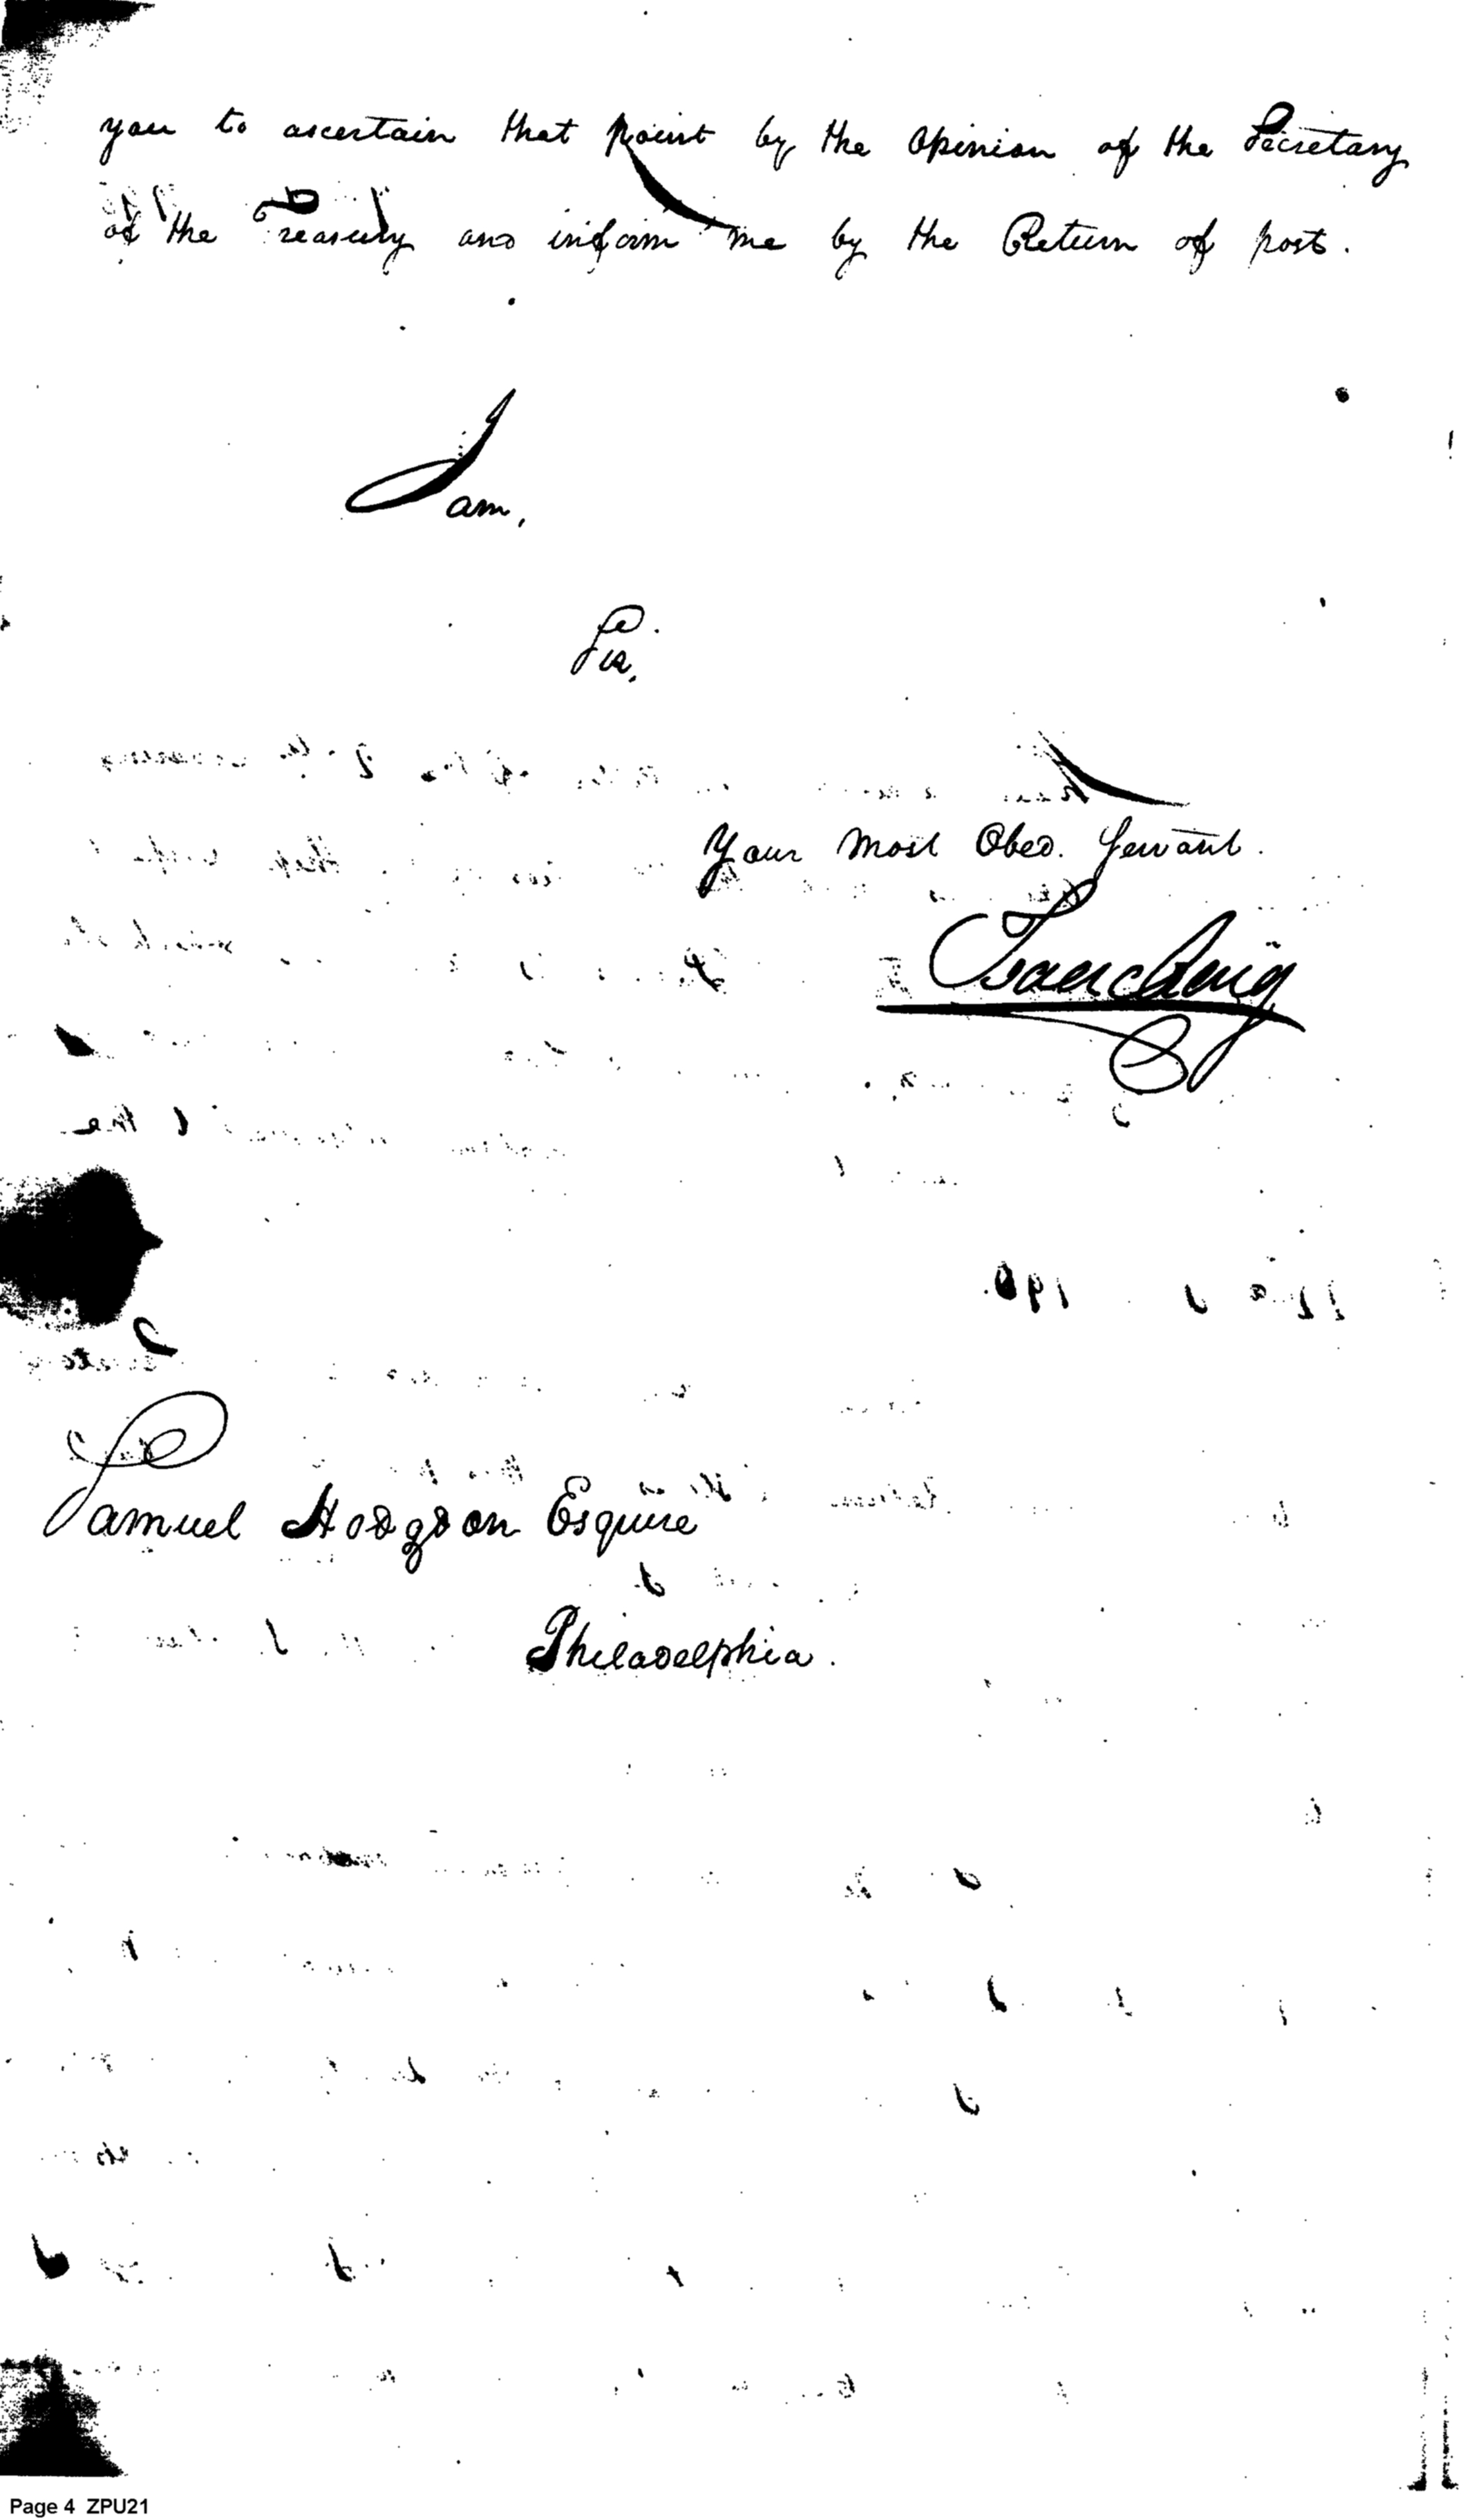 you to ascertain that point by the Opinion of the Secretary
of the Treasury and inform me by the Return of post.
I am,
Sir,
Your Most Obed. Servant.
Isaac Craig
Samuel Hodgson Esquire
Philadelphia.
Page 4 ZPU21